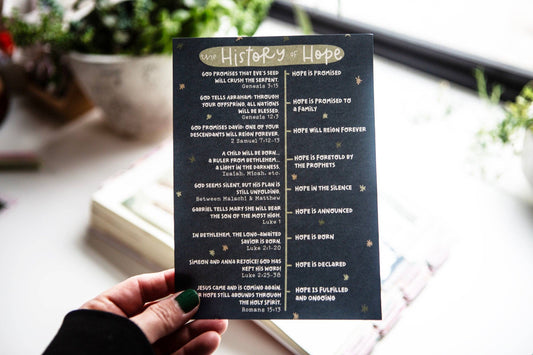 the History of Hope
GOD PROMISES THAT EVE'S SEED
WILL CRUSH THE SERPENT.
Genesis 3:15
HOPE IS PROMISED
GOD TELLS ABRAHAM: THROUGH
YOUR OFFSPRING, ALL NATIONS
WILL BE BLESSED.
Genesis 12:3
HOPE IS PROMISED TO
A FAMILY
GOD PROMISES DAVID: ONE OF YOUR
DESCENDANTS WILL REIGN FOREVER.
2 Samuel 7:12-13
HOPE WILL REIGN FOREVER
A CHILD WILL BE BORN...
A RULER FROM BETHLEHEM...
A LIGHT IN THE DARKNESS.
Isaiah, Micah, etc.
HOPE IS FORETOLD BY
THE PROPHETS
GOD SEEMS SILENT, BUT HIS PLAN IS
STILL UNFOLDING.
Between Malachi & Matthew
HOPE IN THE SILENCE
GABRIEL TELLS MARY SHE WILL BEAR
THE SON OF THE MOST HIGH.
Luke 1
HOPE IS ANNOUNCED
IN BETHLEHEM, THE LONG-AWAITED
SAVIOR IS BORN.
Luke 2:1-20
HOPE IS BORN
SIMEON AND ANNA REJOICE! GOD HAS
KEPT HIS WORD!
Luke 2:25-38
HOPE IS DECLARED
JESUS CAME AND IS COMING AGAIN.
HOPE STILL ABOUNDS THROUGH
THE HOLY SPIRIT.
Romans 15:13
HOPE IS FULFILLED
AND ONGOING